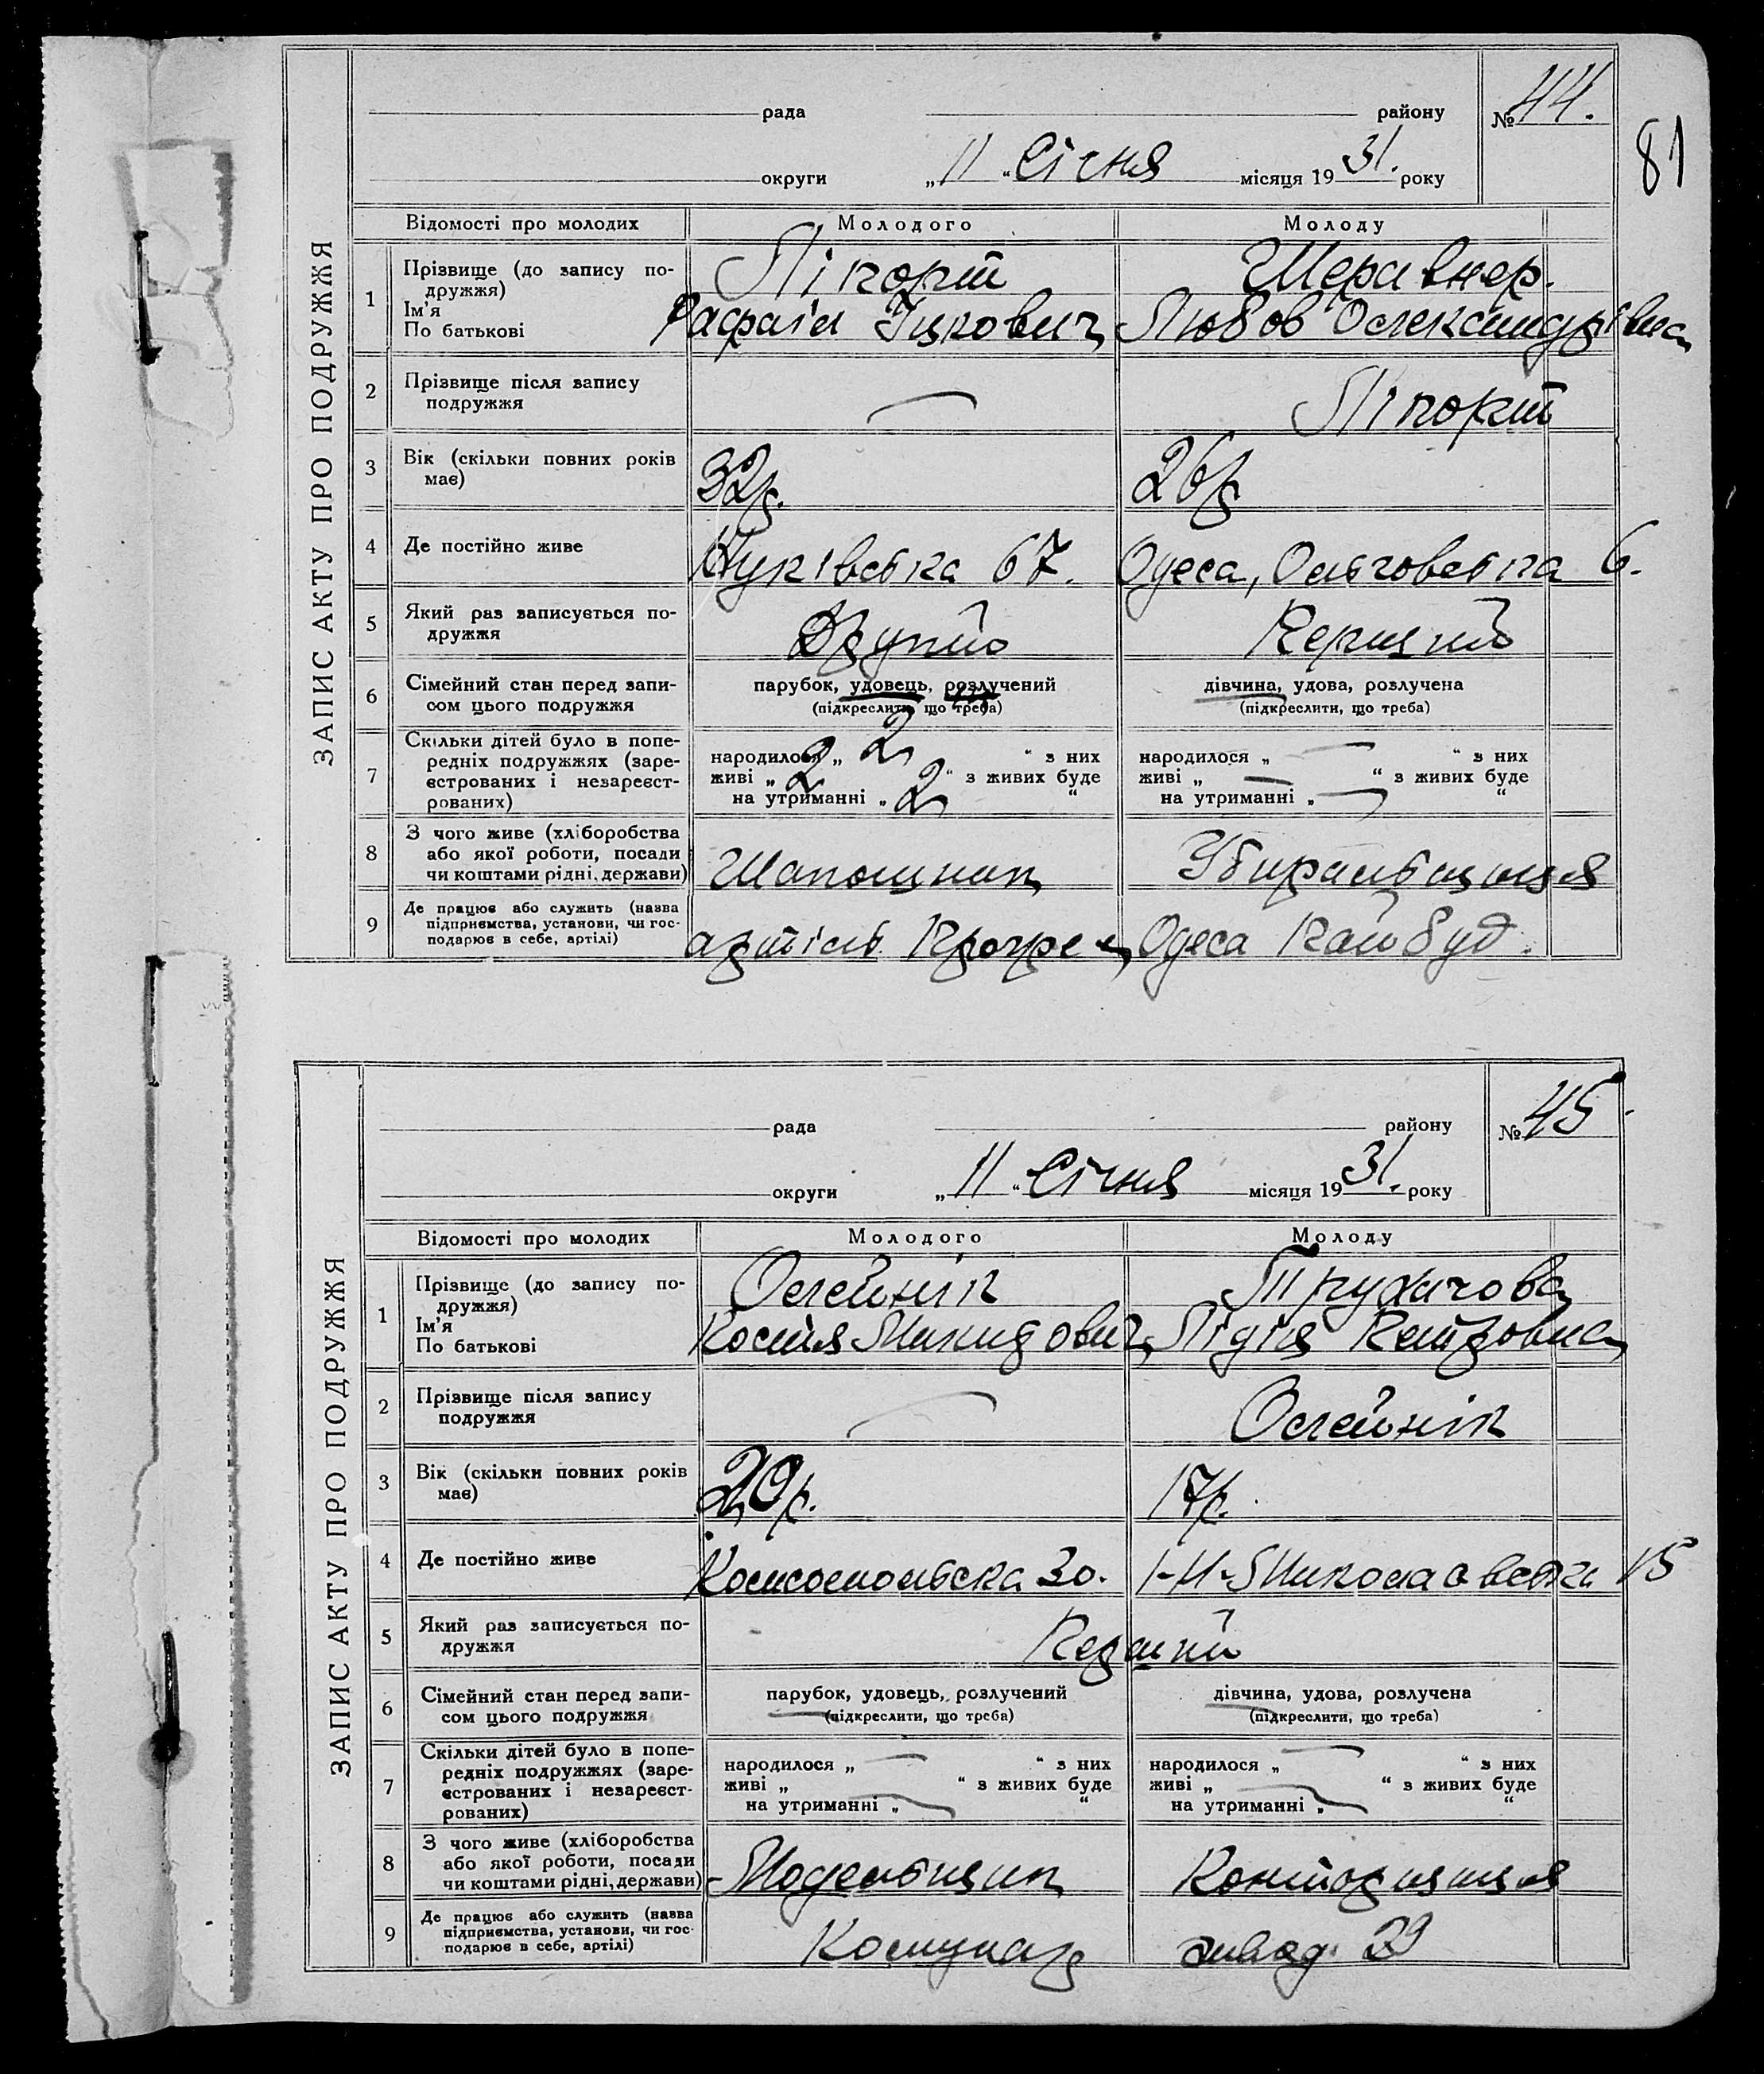 81
ЗАПИС АКТУ ПРО ПОДРУЖЖЯ
рада району № 44.
округи „11“ Січня місяця 1931. року
Відомості про молодих Молодого Молоду
1 Прізвище (до запису подружжя) Ім'я По батькові
Лікорт
Рафаїл Іцкович Любов Олександрівна
2 Прізвище після запису подружжя — Лікорт
3 Вік (скільки повних років має) 32р. 26р
4 Де постійно живе 67. Одеса, 6.
5 Який раз записується подружжя Другий Перший
6 Сімейний стан перед записом цього подружжя парубок, удовець, розлучений дівчина, удова, розлучена
(підкреслити, що треба) (підкреслити, що треба)
7 Скільки дітей було в попередніх подружжях (зареєстрованих і незареєстрованих)
народилося „ 2 “ з них народилося „ — “ з них
живі „ 2 “ з живих буде живі „ — “ з живих буде
на утриманні „ 2 “ на утриманні „ — “
8 З чого живе (хліборобства або якої роботи, посади чи коштами рідні, держави) Шапошник Убиральщиця
9 Де працює або служить (назва підприємства, установи, чи господарює в себе, артілі) артіль Прогрес Одеса
ЗАПИС АКТУ ПРО ПОДРУЖЖЯ
рада району № 45
округи „11“ Січня місяця 1931. року
Відомості про молодих Молодого Молоду
1 Прізвище (до запису подружжя) Ім'я По батькові
Олейнік Трухачова
Костя Лідія Петровна
2 Прізвище після запису подружжя — Олейнік
3 Вік (скільки повних років має) 20р. 17р.
4 Де постійно живе Комсомольська 30. 15
5 Який раз записується подружжя Перший
6 Сімейний стан перед записом цього подружжя парубок, удовець, розлучений дівчина, удова, розлучена
(підкреслити, що треба) (підкреслити, що треба)
7 Скільки дітей було в попередніх подружжях (зареєстрованих і незареєстрованих)
народилося „ — “ з них народилося „ — “ з них
живі „ “ з живих буде живі „ — “ з живих буде
на утриманні „ — “ на утриманні „ — “
8 З чого живе (хліборобства або якої роботи, посади чи коштами рідні, держави) Модельщик Конторщиця
9 Де працює або служить (назва підприємства, установи, чи господарює в себе, артілі) Комунар